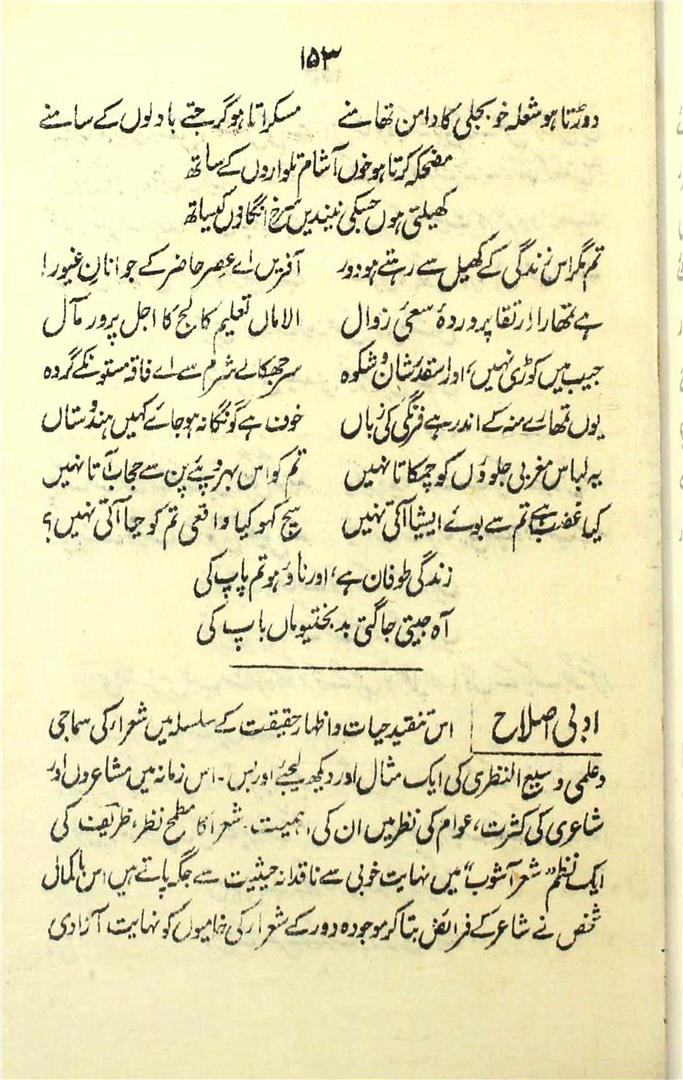 ۱۵۳
دوڑتا ہو شعلہ خو بجلی کا دامن تھامنے مسکراتا ہو گرجتے بادلوں کے سامنے
مضحکہ کرتا ہو خوں آشام تلواروں کے ساتھ
کھیلتی ہوں جسکی نیندیں سرخ انگاروں کیساتھ
تم مگر اس زندگی کے کھیل سے رہتے ہو دور آفریں اے عصرِ حاضر کے جوانانِ غیور!
ہے تمھارا ارتقا پروردۂ سعیِ زوال الاماں تعلیم کالج کا اجل پرور مآل
جیب میں کوڑی نہیں، اور اسقدر شان و شکوہ سر جھکالے شرم سے اے فاقہ مستوں کے گروہ
یوں تمھارے منہ کے اندر ہے فرنگی کی زباں خوف ہے گونگا نہ ہو جائے کہیں ہندوستاں
یہ لباسِ مغربی جلووں کو چمکاتا نہیں تم کو اس بہروپئے پن سے حجاب آتا نہیں
کیا غضب ہے تم سے بوئے ایشیا آتی نہیں سچ کہو کیا واقعی تم کو حیا آتی نہیں؟
زندگی طوفان ہے، اور ناؤ ہو تم پاپ کی
آہ جیتی جاگتی بدبختیو ماں باپ کی
ادبی اصلاح اس تنقید حیات و اظہار حقیقت کے سلسلہ میں شعراء کی سماجی
و علمی وسیع النظری کی ایک مثال اور دیکھ لیجئے اور بس۔ اس زمانہ میں مشاعروں اور
شاعری کی کثرت، عوام کی نظر میں ان کی اہمیت۔ شعرا کا مطمح نظر، ظریف کی
ایک نظم "شعر آشوب" میں نہایت خوبی سے ناقدانہ حیثیت سے جگہ پاتے ہیں اس باکمال
شخص نے شاعر کے فرائض بتا کر موجودہ دور کے شعراء کی خامیوں کو نہایت آزادی